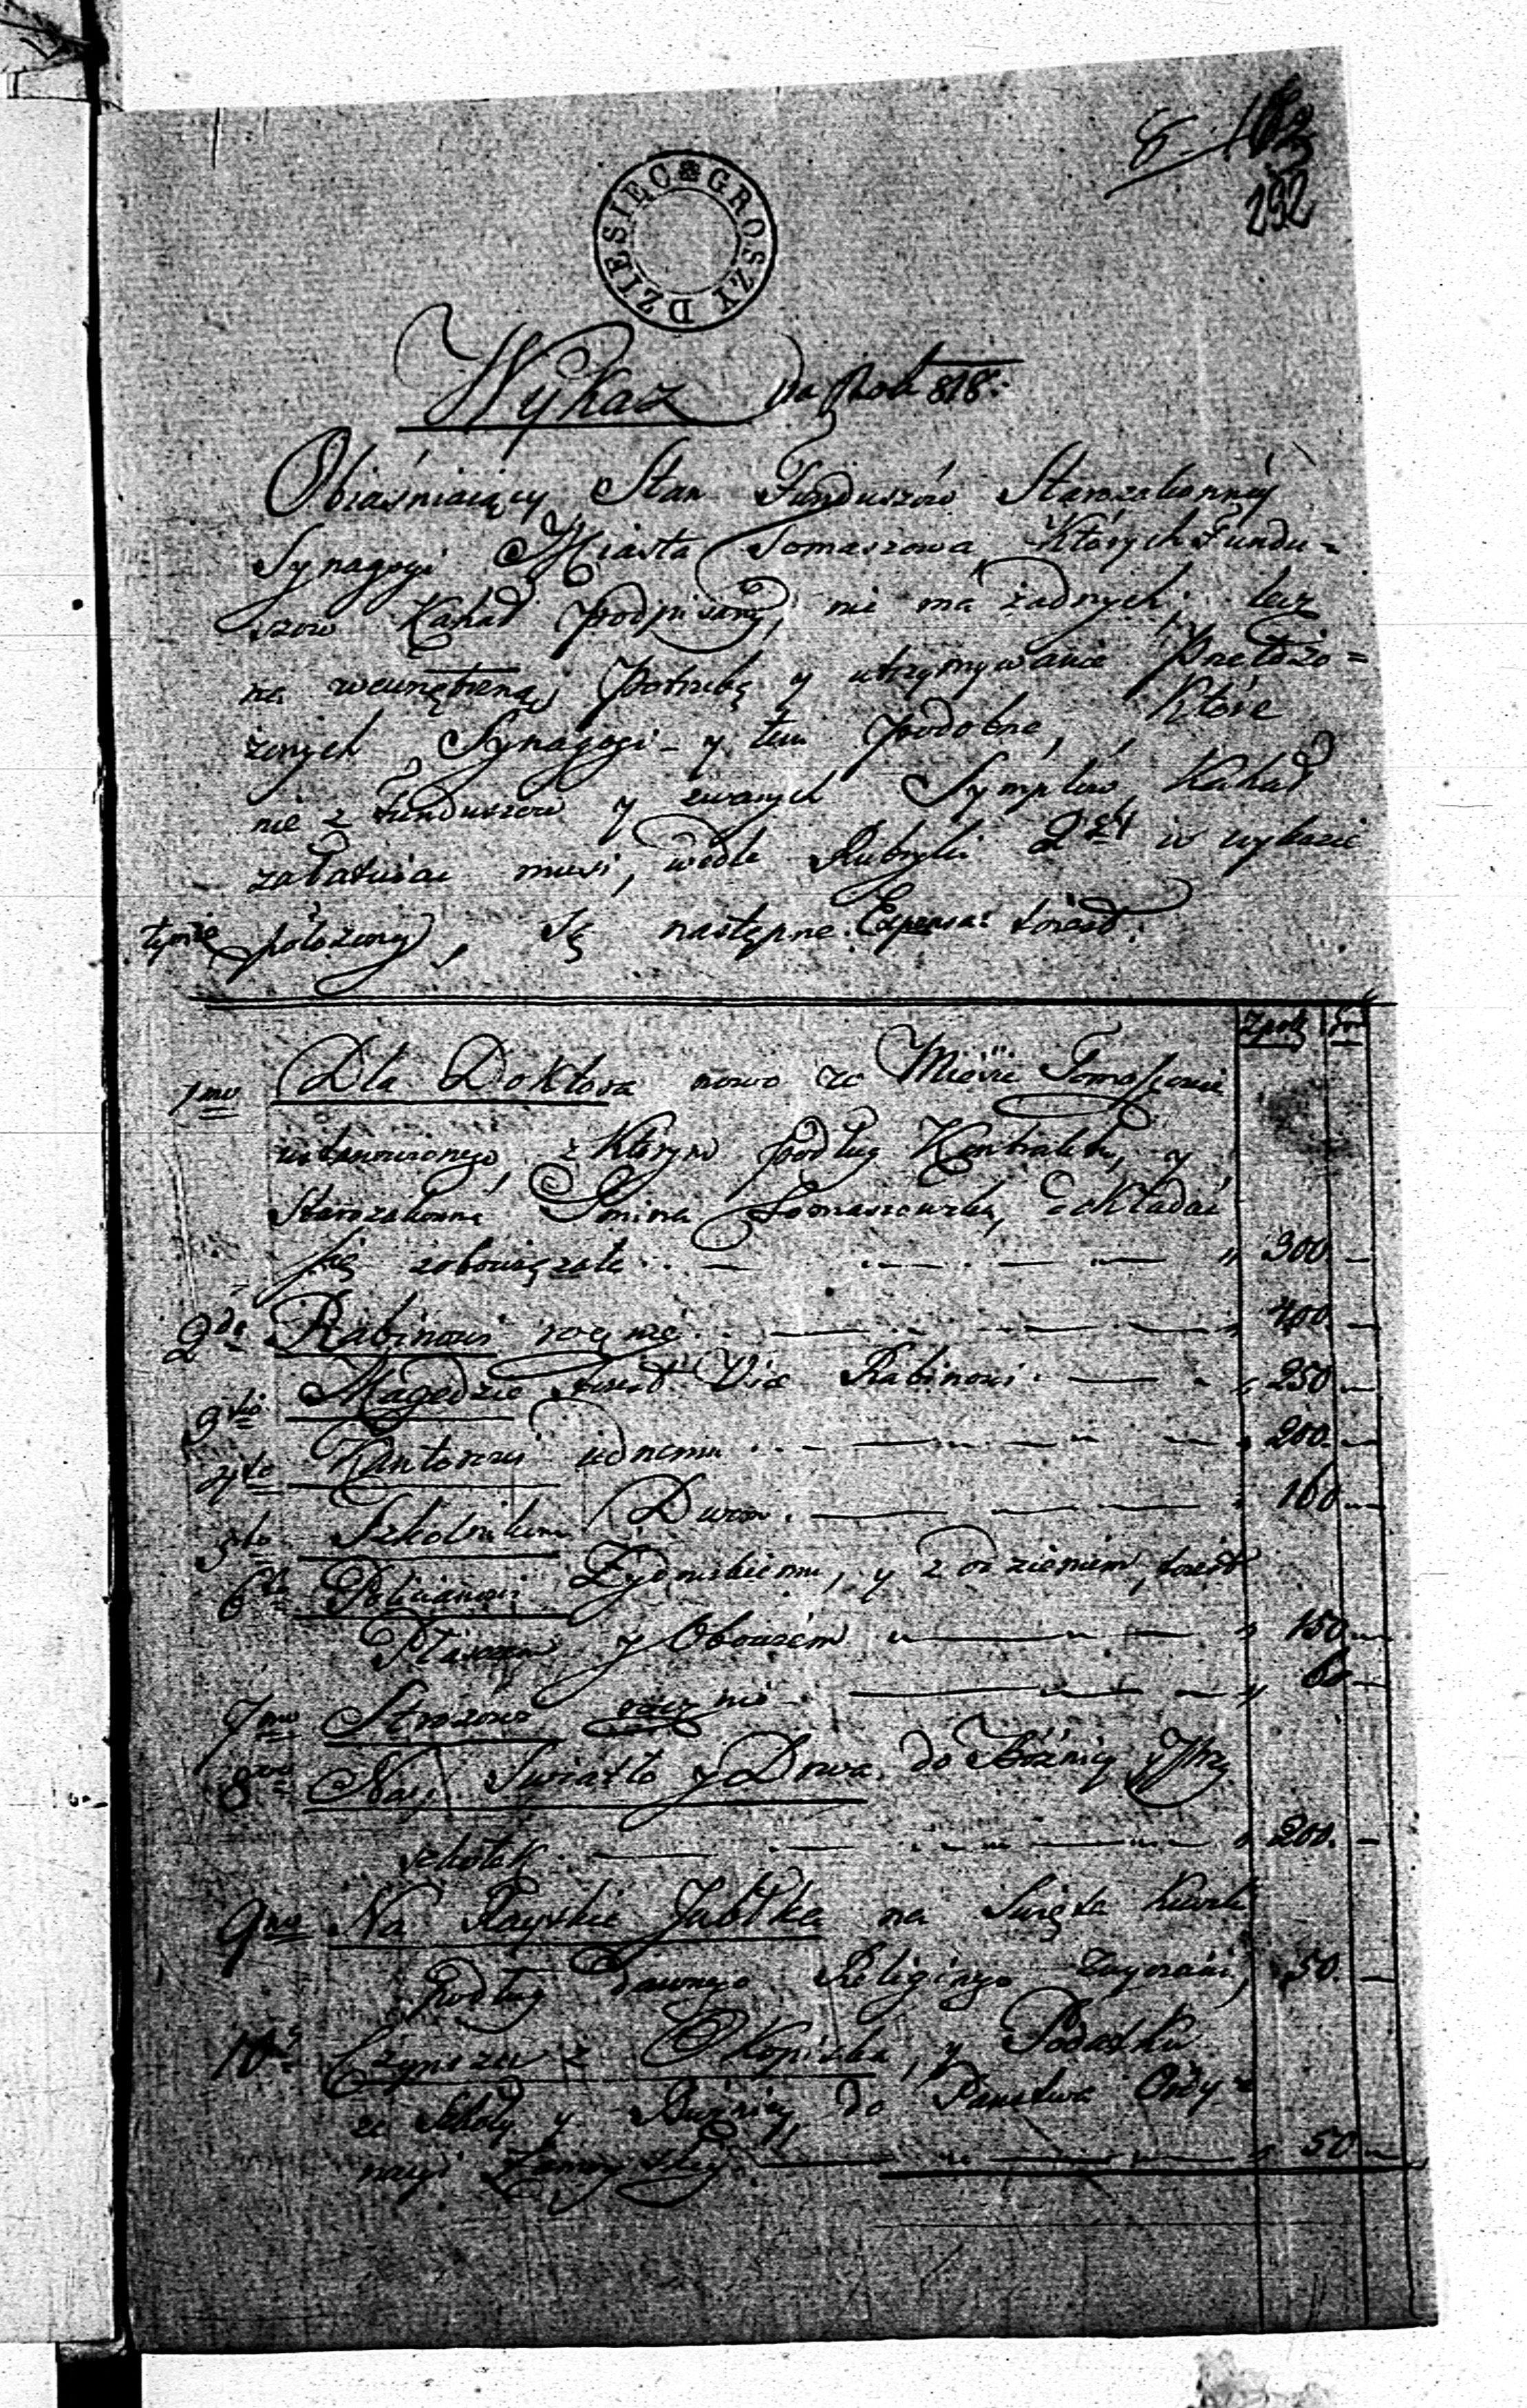 192
DZIESIĘC GROSZY
Wykaz Na Rok 818:
Obiaśniaiący Stan Funduszów Starozakonnéy
Synagogi Miasta Tomaszowa, Których Fundu=
szow Kahał podpisany, nie ma żadnych, lecz
na wewnętrzną Potrzebę y utrzymywanie Przełożo=
żonych Synagogi y tem podobne, Które
nie z Funduszow y zwanych Symplow Kahał
zał musi, wedle Rubryki 2éy w wykazie
położoney, Są następne Expensa:
Zpols gr
1mo Dla Doktora nowo w Mieście Tomaszowie
ustanowionego, z Którym podług Kontraktu, y
Starozakonna Gmina Tomaszowska, składać
się zobowiązała " 300 —
2do Rabinowi rocznie " 400 —
3tio Magedzie Vice Rabinowi " 250 —
4to Kantorowi iednemu " 200 —
5to Szkolnikom Dwom " 100 —
6to Policianowi Żydowskiemu, y z odzieniem,
Płaszczem y Obowiem " 150 —
7mo Stróżowi rocznie " 60 —
8vo Na Swiatło y Drwa do Bóżnicy y Przy
szkołek " 200 —
9no Na Rayskie Jabłka na Święta Kuczki
Podług dawnego Religinego Zwyczaiu, 50 —
10o Czynszu z Okopiska, y Podatku
ze Szkoły y Bużnicy do Państwa Ordy=
nacyi Zamoyskiey " 50 —